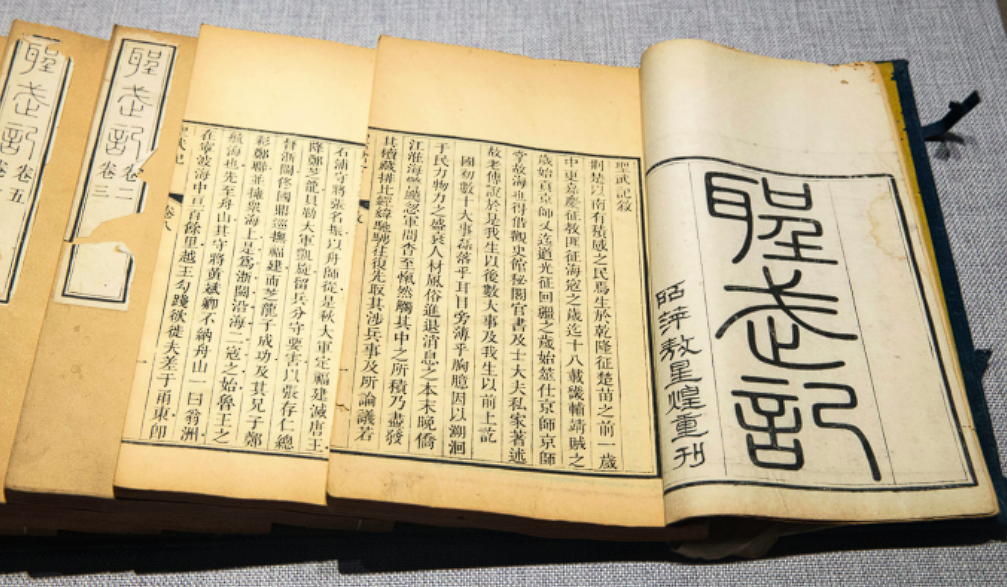 聖武記
昭萍敖星煌重刊
聖武記敘
荊楚以南有積感之民焉生於乾隆征楚苗之前一歲
中更嘉慶征教匪征海寇之歲迄十八載畿輔靖賊之
歲始貢京師又迄道光征回疆之歲始筮仕京師京師
掌故海也得借觀史館秘閣官書及士大夫私家著述
故老傳說於是我生以後數大事及我生以前上訖
國初數十大事磊落乎耳目旁薄乎胸臆因以溯洄
于民力物力之盛衰人材風俗進退消息之本末晚僑
江淮海警飈忽軍問沓至愾然觸其中之所積乃盡發
其櫝藏排比經緯馳騁往復先取其涉兵事及所論議若
石浦守將張名振以舟師從是秋大軍定福建滅唐王
降鄭芝龍貝勒大軍凱旋留兵分守要害以張存仁總
督浙閩佟國鼐巡撫福建而芝龍子成功及其兄子鄭
彩鄭聯並擁眾海上是爲浙閩沿海二寇之始魯王之
航海也先至舟山其守將黃斌卿不納舟山一曰翁洲
在寧波海中亘百餘里越王勾踐欲徙夫差于甬東卽
聖武記
卷八
聖武記
卷二
卷三
聖武記
卷五